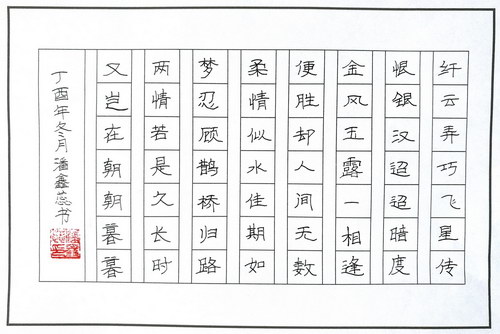 纤云弄巧飞星传
恨银汉迢迢暗度
金风玉露一相逢
便胜却人间无数
柔情似水佳期如
梦忍顾鹊桥归路
两情若是久长时
又岂在朝朝暮暮
丁酉年冬月潘鑫蕊书